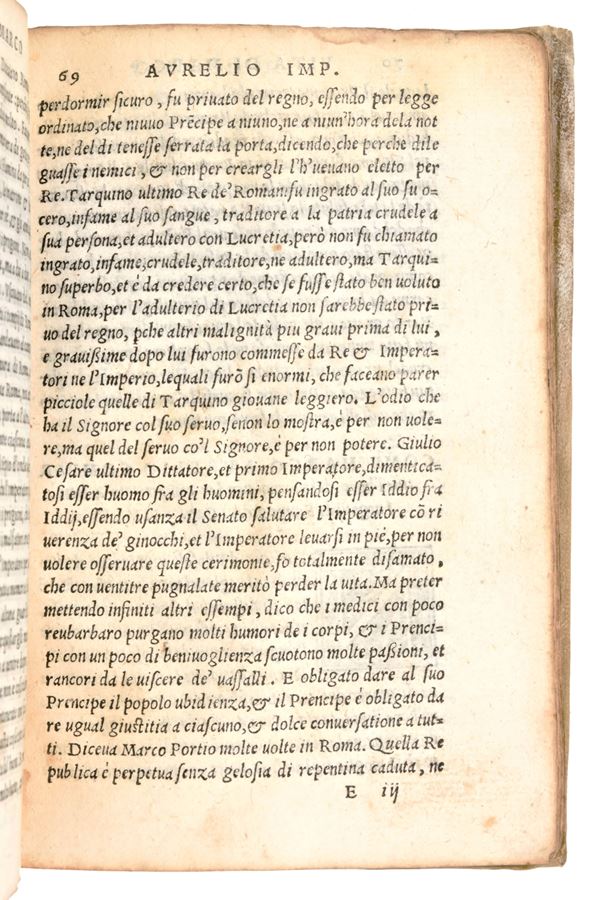 MARCO
69 AVRELIO IMP.
perdormir sicuro, fu priuato del regno, essendo per legge
ordinato, che niuuo Prēcipe a niuno, ne a niun'hora de la not
te, ne del di tenesse serrata la porta, dicendo, che perche dile
guasse i nemici, & non per creargli l'h'ueuano eletto per
Re. Tarquino ultimo Re de' Romani fu ingrato al suo suo=
cero, infame al suo sangue, traditore a la patria crudele a
sua persona, et adultero con Lucretia, però non fu chiamato
ingrato, infame, crudele, traditore, ne adultero, ma Tarqui=
no superbo, et è da credere certo, che se fusse stato ben uoluto
in Roma, per l'adulterio di Lucretia non sarebbe stato pri=
uo del regno, pche altri malignità piu graui prima di lui,
e grauißime dopo lui furono commesse da Re & Impera=
tori ne l'Imperio, lequali furō si enormi, che faceano parer
picciole quelle di Tarquino giouane leggiero. L'odio che
ha il Signore col suo seruo, senon lo mostra, è per non uole=
re, ma quel del seruo co'l Signore, è per non potere. Giulio
Cesare ultimo Dittatore, et primo Imperatore, dimentica=
tosi esser huomo fra gli huomini, pensandosi esser Iddio fra
Iddij, essendo usanza il Senato salutare l'Imperatore cō ri
uerenza de' ginocchi, et l'Imperatore leuarsi in piè, per non
uolere osseruare queste cerimonie, fo totalmente disamato,
che con uentitre pugnalate meritò perder la uita. Ma preter
mettendo infiniti altri essempi, dico che i medici con poco
reubarbaro purgano molti humori de i corpi, & i Prenci=
pi con un poco di beniuoglienza scuotono molte paßioni, et
rancori da le uiscere de' uassalli. E obligato dare al suo
Prencipe il popolo ubidienza, & il Prencipe è obligato da
re ugual giustitia a ciascuno, & dolce conuersatione a tut=
ti. Diceua Marco Portio molte uolte in Roma. Quella Re
publica è perpetua senza gelosia di repentina caduta, ne
E iij